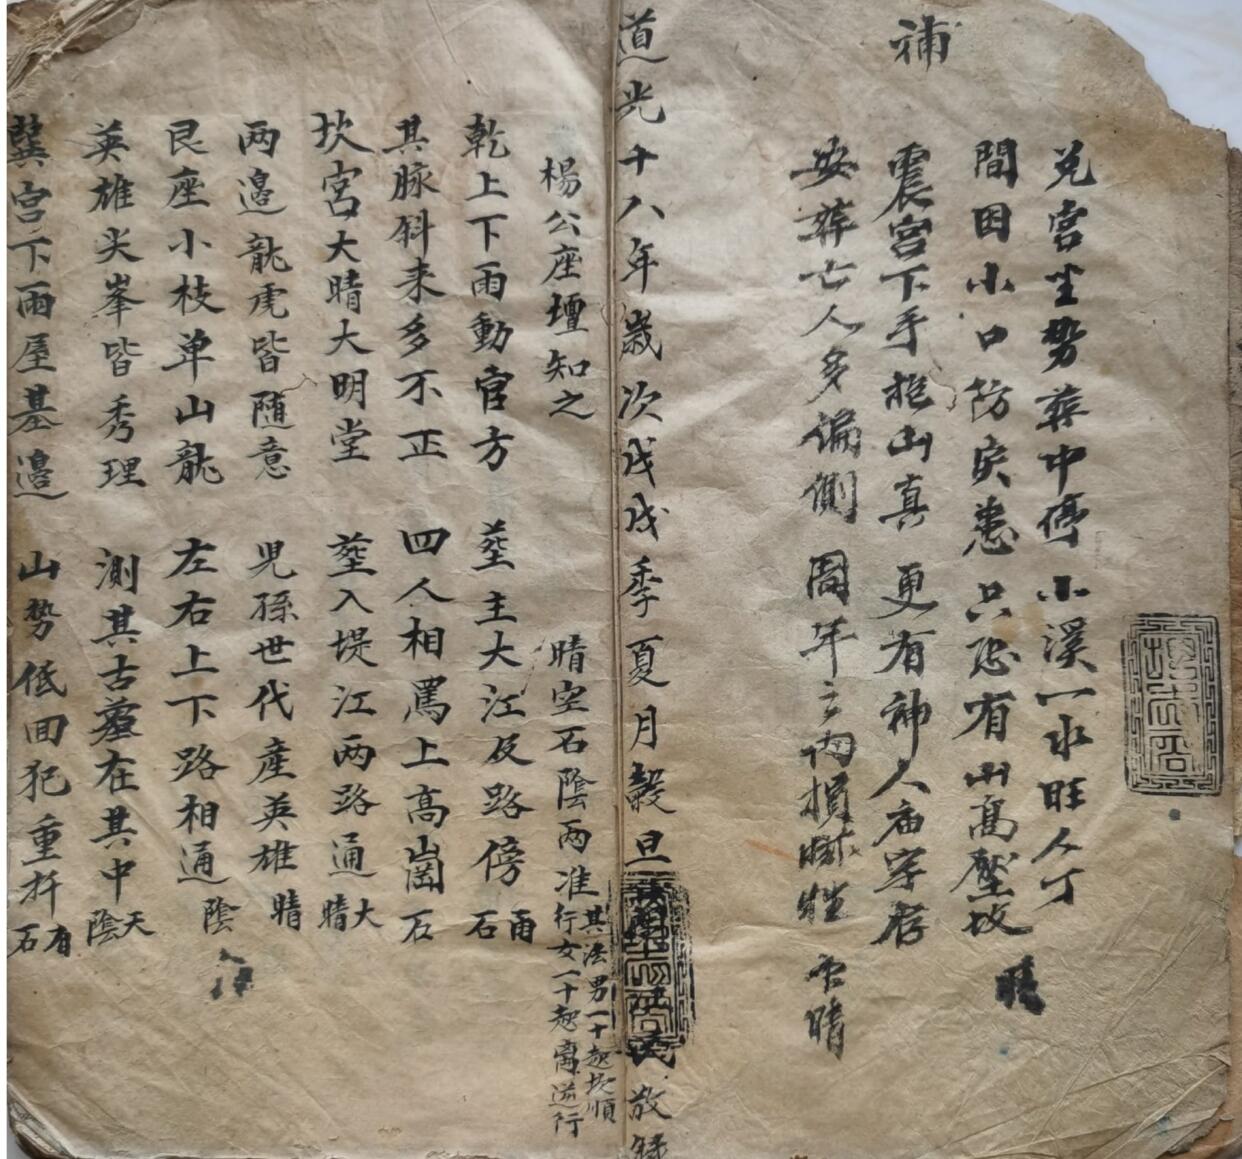 補
兑宮坐势葬中停 小溪一水旺人丁
間因小口防疾患 只恐有山高壓坟 晴
震宮下手抱山真 更有神人庙宇存
安葬亡人多偏側 周年之内損 牲 雨晴
道光十八年歲次戊戌季夏月穀旦 敬録
楊公座壇知之 晴空石陰雨准 其法男一十起坎順行女一十起离逆行
乾上下雨動官方 塟主大江及路傍 雨石
其脉斜来多不正 四人相罵上高崗 石
坎宮大晴大明堂 塟入堤江两路通 大晴
两邊龍虎皆随意 児孫世代産英雄 晴
艮座小枝单山龍 左右上下路相通 陰
英雄尖峯皆秀理 測其古墓在其中 天陰
巽宮下雨屋基邊 山势低回犯重拆 有石